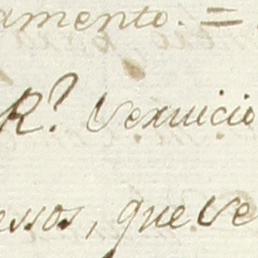 amento. =
R.? Sexuicio
essos, que se